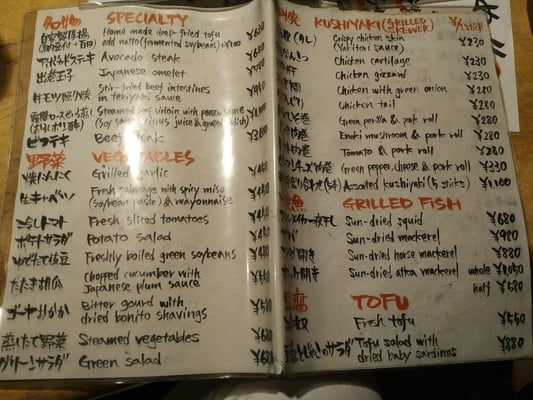 名物 SPECIALTY
自家製厚揚 Home made deep-fried tofu ¥630
add natto (fermented soybeans) +¥100
アボカドステキ Avocado steak
出巻玉子 Japanese omelet
牛モツ照り焼 Stir-fried beef intestines
in teriyaki sauce
Steamed beef sirloin with ponzu sauce
(soy sauce, citrus juice & grated radish)
Beef steak
野菜 VEGETABLES
焼にんにく Grilled garlic ¥440
生キャベツ Fresh cabbage with spicy miso
(soybean paste) & mayonnaise
Fresh sliced tomatoes
ポテトサラダ Potato salad
ゆでたて枝豆 Freshly boiled green soybeans ¥480
たたき胡瓜 Chopped cucumber with ¥550
Japanese plum sauce
ゴーヤおかか Bitter gourd with
dried bonito shavings
蒸したて野菜 Steamed vegetables ¥680
グリーンサラダ Green salad ¥680
KUSHIYAKI (GRILLED SKEWER) ¥/1stick
Crispy chicken skin ¥230
(Yakitori sauce)
Chicken cartilage ¥230
Chicken gizzard ¥230
Chicken with green onion ¥280
Chicken tail ¥280
Green perilla & pork roll ¥280
Enoki mushroom & pork roll ¥280
Tomato & pork roll ¥280
Green pepper, cheese & pork roll ¥330
Assorted kushiyaki (5 sticks) ¥1,100
GRILLED FISH
Sun-dried squid ¥680
Sun-dried mackerel ¥980
Sun-dried horse mackerel ¥880
Sun-dried atka mackerel whole ¥1,050
half ¥580
TOFU
Fresh tofu ¥550
Tofu salad with ¥880
dried baby sardines